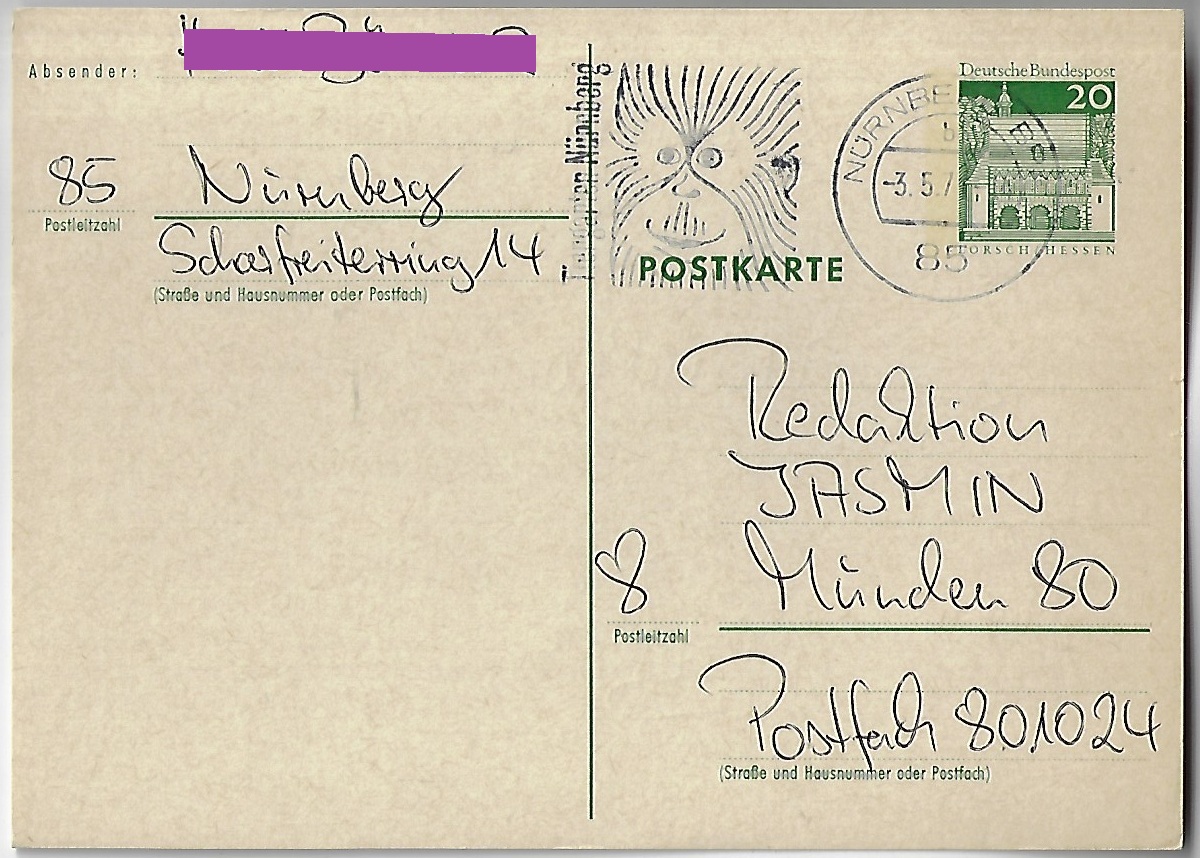 Absender:
85 Nürnberg
Postleitzahl
Scharfreiterring 14
(Straße und Hausnummer oder Postfach)
Tiergarten Nürnberg
NÜRNBERG
-3. 5. 7
85
Deutsche Bundespost
20
LORSCH/HESSEN
POSTKARTE
Redaktion
JASMIN
8 München 80
Postleitzahl
Postfach 801024
(Straße und Hausnummer oder Postfach)